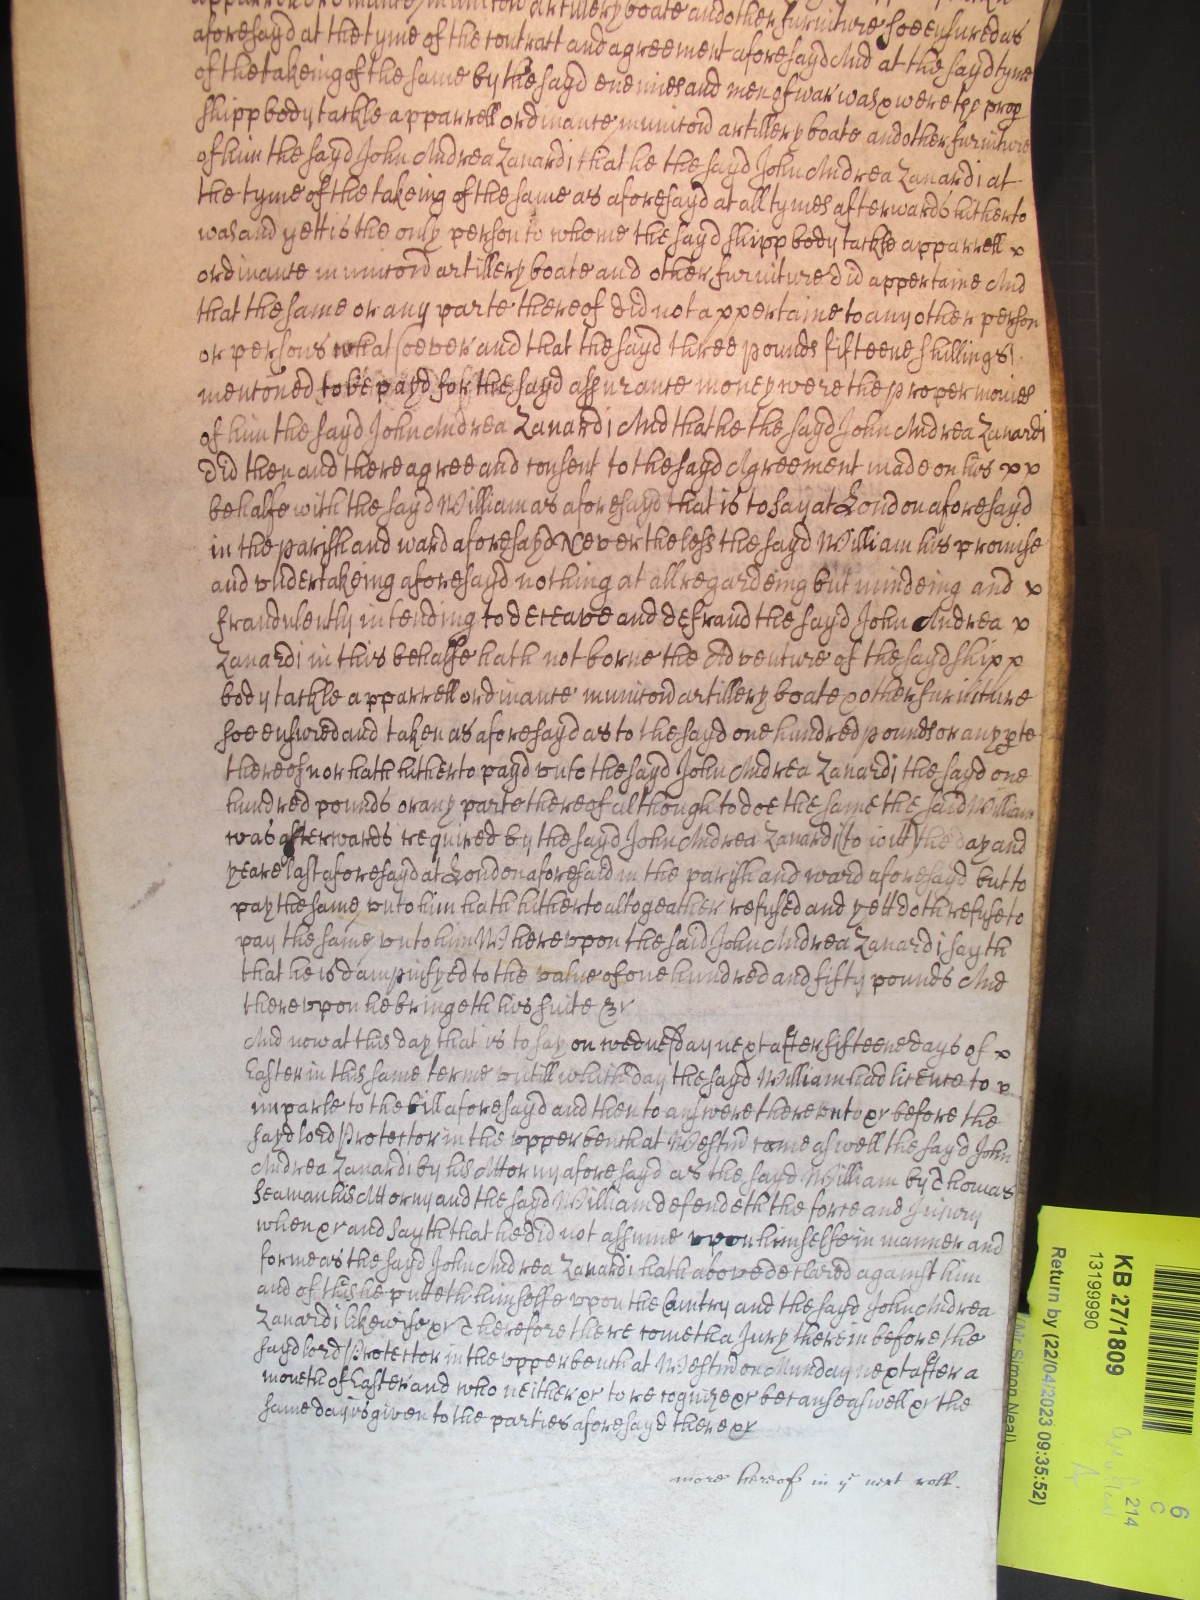 apparrell ordinance munition artillery boate and other furniture soe ensured as
aforesayd at the tyme of the contract and agreement aforesayd And at the sayd tyme
of the takeing of the same by the sayd enemies and men of war was & were the prop
shipp body tackle apparrell ordinance munition artillery boate and other furniture
of him the sayd John Andrea Zanardi that he the sayd John Andrea Zanardi at
the tyme of the takeing of the same as aforesayd at all tymes afterwards hitherto
was and yett is the only person to whome the sayd shipp body tackle apparrell x
ordinance munition artillery boate and other furniture did appertaine And
that the same or any parte thereof did not appertaine to any other person
or persons whatsoever and that the sayd three pounds fifteene shillings
mentoned to be payd for the sayd assurance money were the proper monies
of him the sayd John Andrea Zanardi And that he the sayd John Andrea Zanardi
did then and there agree and consent to the sayd Agreement made on his x x
behalfe with the sayd William as aforesayd that is to say at London aforesayd
in the parish and ward aforesayd Nevertheless the sayd William his promise
and undertakeing aforesayd nothing at all regardeing but mindeing and x
fraudulently intending to deceave and defraud the sayd John Andrea x
Zanardi in this behalfe hath not borne the Adventure of the sayd shipp x
body tackle apparrell ordinance munition artillery boate & other furniture
soe ensured and taken as aforesayd as to the sayd one hundred pounds or any pte
thereof nor hath hitherto payd vnto the sayd John Andrea Zanardi the sayd one
hundred pounds or any parte thereof although to doe the same the said William
was afterwards required by the sayd John Andrea Zanardi (to witt) the day and
yeare last aforesayd at London aforesaid in the parish and ward aforesayd but to
pay the same vnto him hath hitherto altogeather refused and yett doth refuse to
pay the same vnto him Wherevpon the said John Andrea Zanardi sayth
that he is dampnifyed to the value of one hundred and fifty pounds And
therevpon he bringeth his suite &c
And now at this day that is to say on wednesday next after fifteene dayes of x
Easter in this same terme vntill which day the sayd William had licence to x
imparle to the bill aforesayd and then to answere therevnto &c before the
sayd lord Protector in the vpper bench at Westm came aswell the sayd John
Andrea Zanardi by his Attorny aforesayd as the sayd William by Thomas
Seaman his Attorny and the sayd William defendeth the force and Injury
when &c and sayth that he did not assume vpon himselfe in manner and
forme as the sayd John Andrea Zanardi hath above declared against him
and of this he putteth himselfe vpon the Cuntry and the sayd John Andrea
Zanardi likewise &c Therefore there cometh a Jury therein before the
sayd lord Protector in the vpper bench at Westm on Munday next after a
moneth of Easter and who neither &c to recognize &c because aswell &c the
same day is given to the parties aforesayd there &c
more hereof in ye next roll.
KB 27/1809
13199990
Return by (22/04/2023 09:35:52)
Simon Neal)
6
C
214